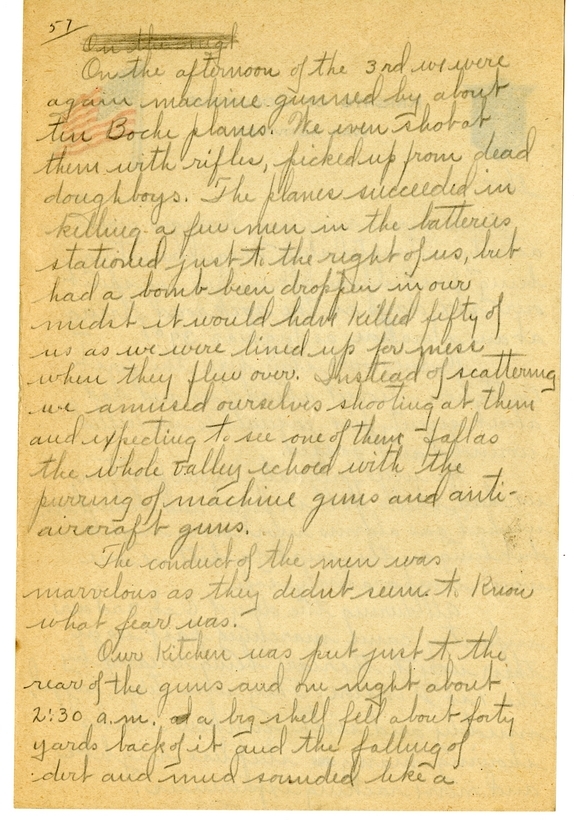 57
On the nigt
On the afternoon of the 3rd we were
again machine gunned by about
ten Boche planes. We even shot at
them with rifles, picked up from dead
doughboys. The planes succeeded in
killing a few men in the batteries
stationed just to the right of us, but
had a bomb been droppen in our
midst it would have killed fifty of
us as we were lined up for mess
when they flew over. Instead of scattering
we amused ourselves shooting at them
and expecting to see one of them fall as
the whole valley echoed with the
purring of machine guns and anti-
aircraft guns.
The conduct of the men was
marvelous as they didnt seem to know
what fear was.
Our Kitchen was put just to the
rear of the guns and one night about
2:30 a.m. a big shell fell about forty
yards back of it and the falling of
dirt and mud sounded like a